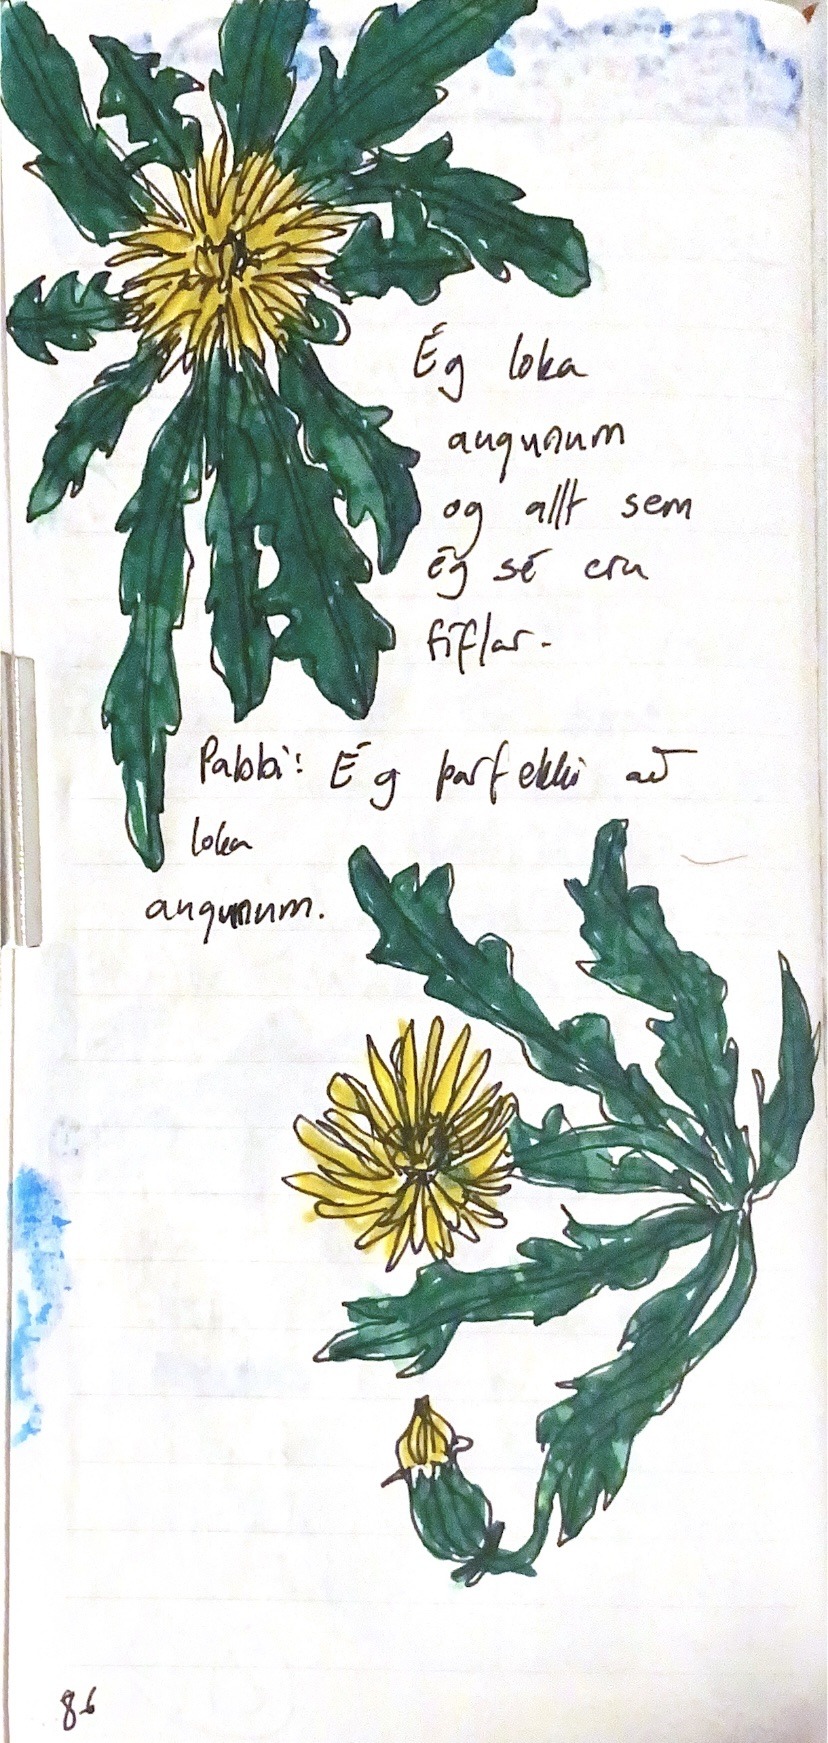 Ég loka
augunum
og allt sem
ég sé eru
fíflar.
Pabbi: Ég þarf ekki að
loka
augunum.
86